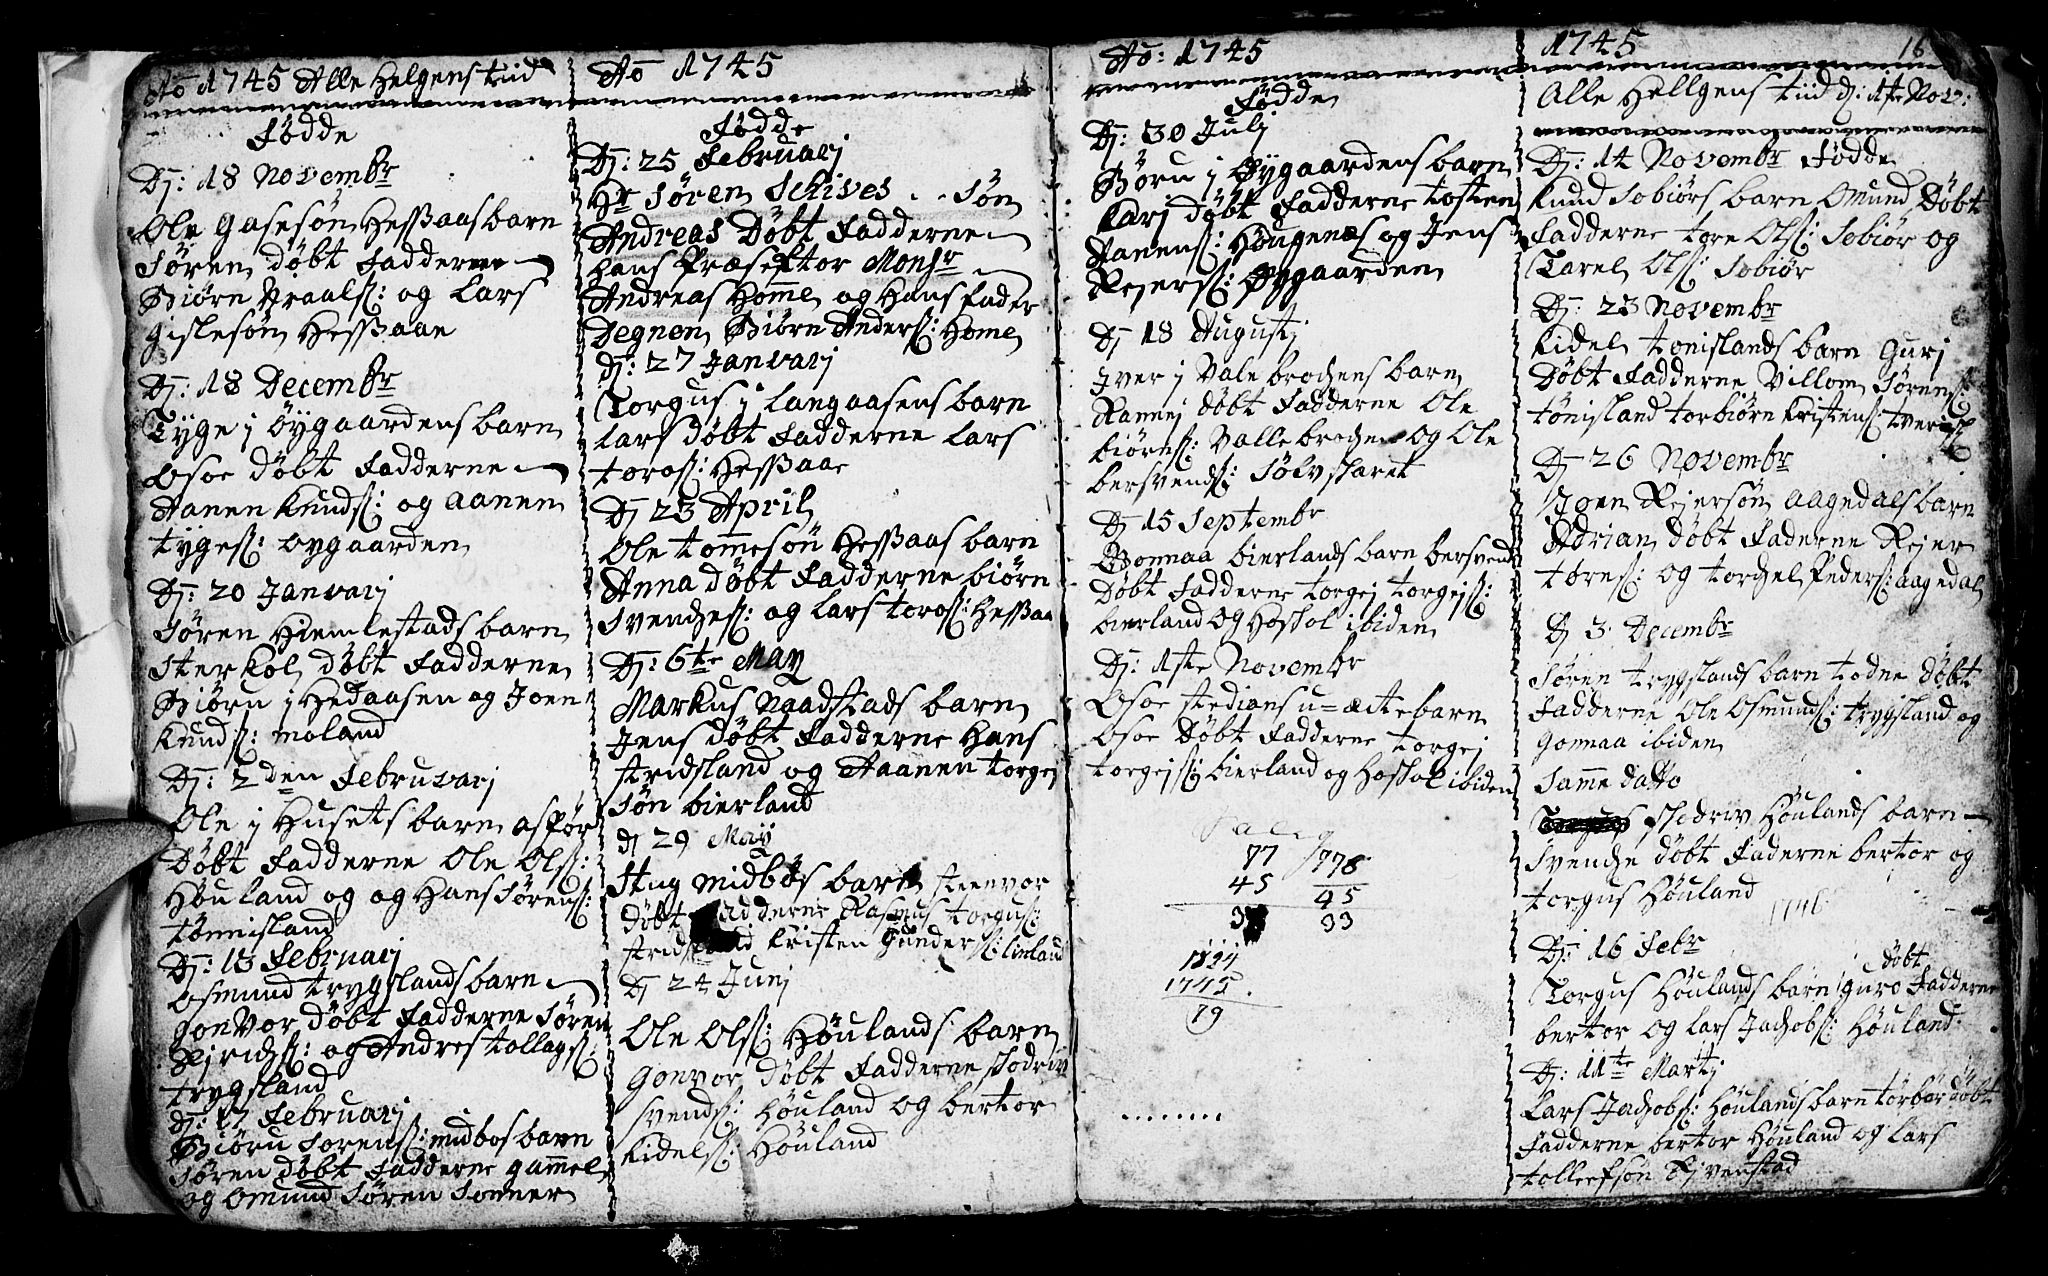 Ao 1745 Alle Helgens tiid
Fødde
Dj: 18 Novembr
Ole Gasesøn Hessaas barn
Søren døbt Fadderne
Biørn Traals: og Lars
Gislesøn Hessaae
Dj: 18 Decembr
Tyge i Øygaardens barn
Osoe døbt Fadderne
Aanen Knuds: og Aanen
Tyges: oygaarden
Dj: 20 Janvarj
Søren Hiemlestads barn
Sterkol døbt Fadderne
Biørn i Hedaasen og Joen
Knuds: moland
Dj: 2den Februvarj
Ole i Husets barn aspør
Døbt Fadderne Ole Ols:
Høuland og og Hans Sørens:
tønnisland
Dj: 13 Februarj
Osmund trygslands barn
Gonvor døbt Fadderne Søren
og Andres tollags:
trygsland
Dj: 17 Februarj
Biørn Sørens: midbos barn
Søren døbt Fadderne gammel
og Omund Søren Sønner
Ao 1745
Fødde
Dj: 25 Februarj
Hr Søren Schives Søn
Andreas Døbt Fadderne
Hans Præseptor Monsr
Andreas Homme og Hans Fader
Degnen Biørn Anders: Home
Dj: 27 Janvarj
Torgus i Langaasens barn
Lars døbt Fadderne Lars
toros: Hessaae
Dj 23 April
Ole tommesøn Hessaas barn
Anna døbt Fadderne biørn
Svenches: og Lars toros: Hessaa
Dj: 6te May
Markus Naadstads barn
Jens døbt Fadderne Hans
stridsland og Aaanen torgej
søn bierland
dj 29 Maij
Stug midbøs barn steenvor
døbt Fadderne Rasmus torgus:
Kristen Gunders: linland
Dj 24 Junj
Ole Ols: Høulands barn
Gonvor døbt Fadderne skodriv
svends: Høuland og bertor
Kidels: Høuland
Ao: 1745
Fødde
Dj: 30 Julj
Børu i Øygaardens barn
Karj døbt Fadderne tosten
Aanens: Høugenæs og Jens
Rejers: Øygaarden
Dj 18 Augustj
Jver i Vale brochens barn
Rannej døbt Fadderne Ole
biørens: Valle brochen og Ole
bersvends: Sølvskaret
Dj 15 Septembr
Gonnaa bierlands barn bersvend
Døbt Fadderne torgej torgejs:
bierland og Hoskol ibiden
Dj: 1ste Novembr
Osoe stedians u=ægte barn
Osoe Døbt Fadderne torgej
torgejs: bierland og Hoskol ibiden
77 1778
45 45
3 33
1745
79
1745
16
Alle Hellgens tiid dj: 1ste Nov:
Dj: 14 Novembr Fødde
Knud Sobiørs barn Omund Døbt
Fadderne tore Ols: Sobiør og
Tarel Ols: Sobiør
Dj: 23 Novembr
Kidel tonislands barn Gurj
Døbt Fadderne Villom Sørens:
tønisland torbiørn Kristens:
Dj 26 Novembr
Joen Rejersøn Aagedals barn
Adrian døbt Faderne Rejer
tores: og torchel Peders: aagedal
Dj 3 Decembr
Søren trygslands barn todne Døbt
Fadderne Ole Osmunds: trygsland og
Gonnaa ibiden
Samme datto
skedriv Høulands barn
Svenche døbt Faderne bertor og
torgus Høuland
1746
Dj: 16 Febr
Torgus Høulands barn guro døbt Fadderne
bertor og Lars Jachobs: Høuland
Dj: 11te Martj
Lars Jachobs: Høulands barn torbør døbt
Fadderne bertor Høuland og Lars
tolleefsøn